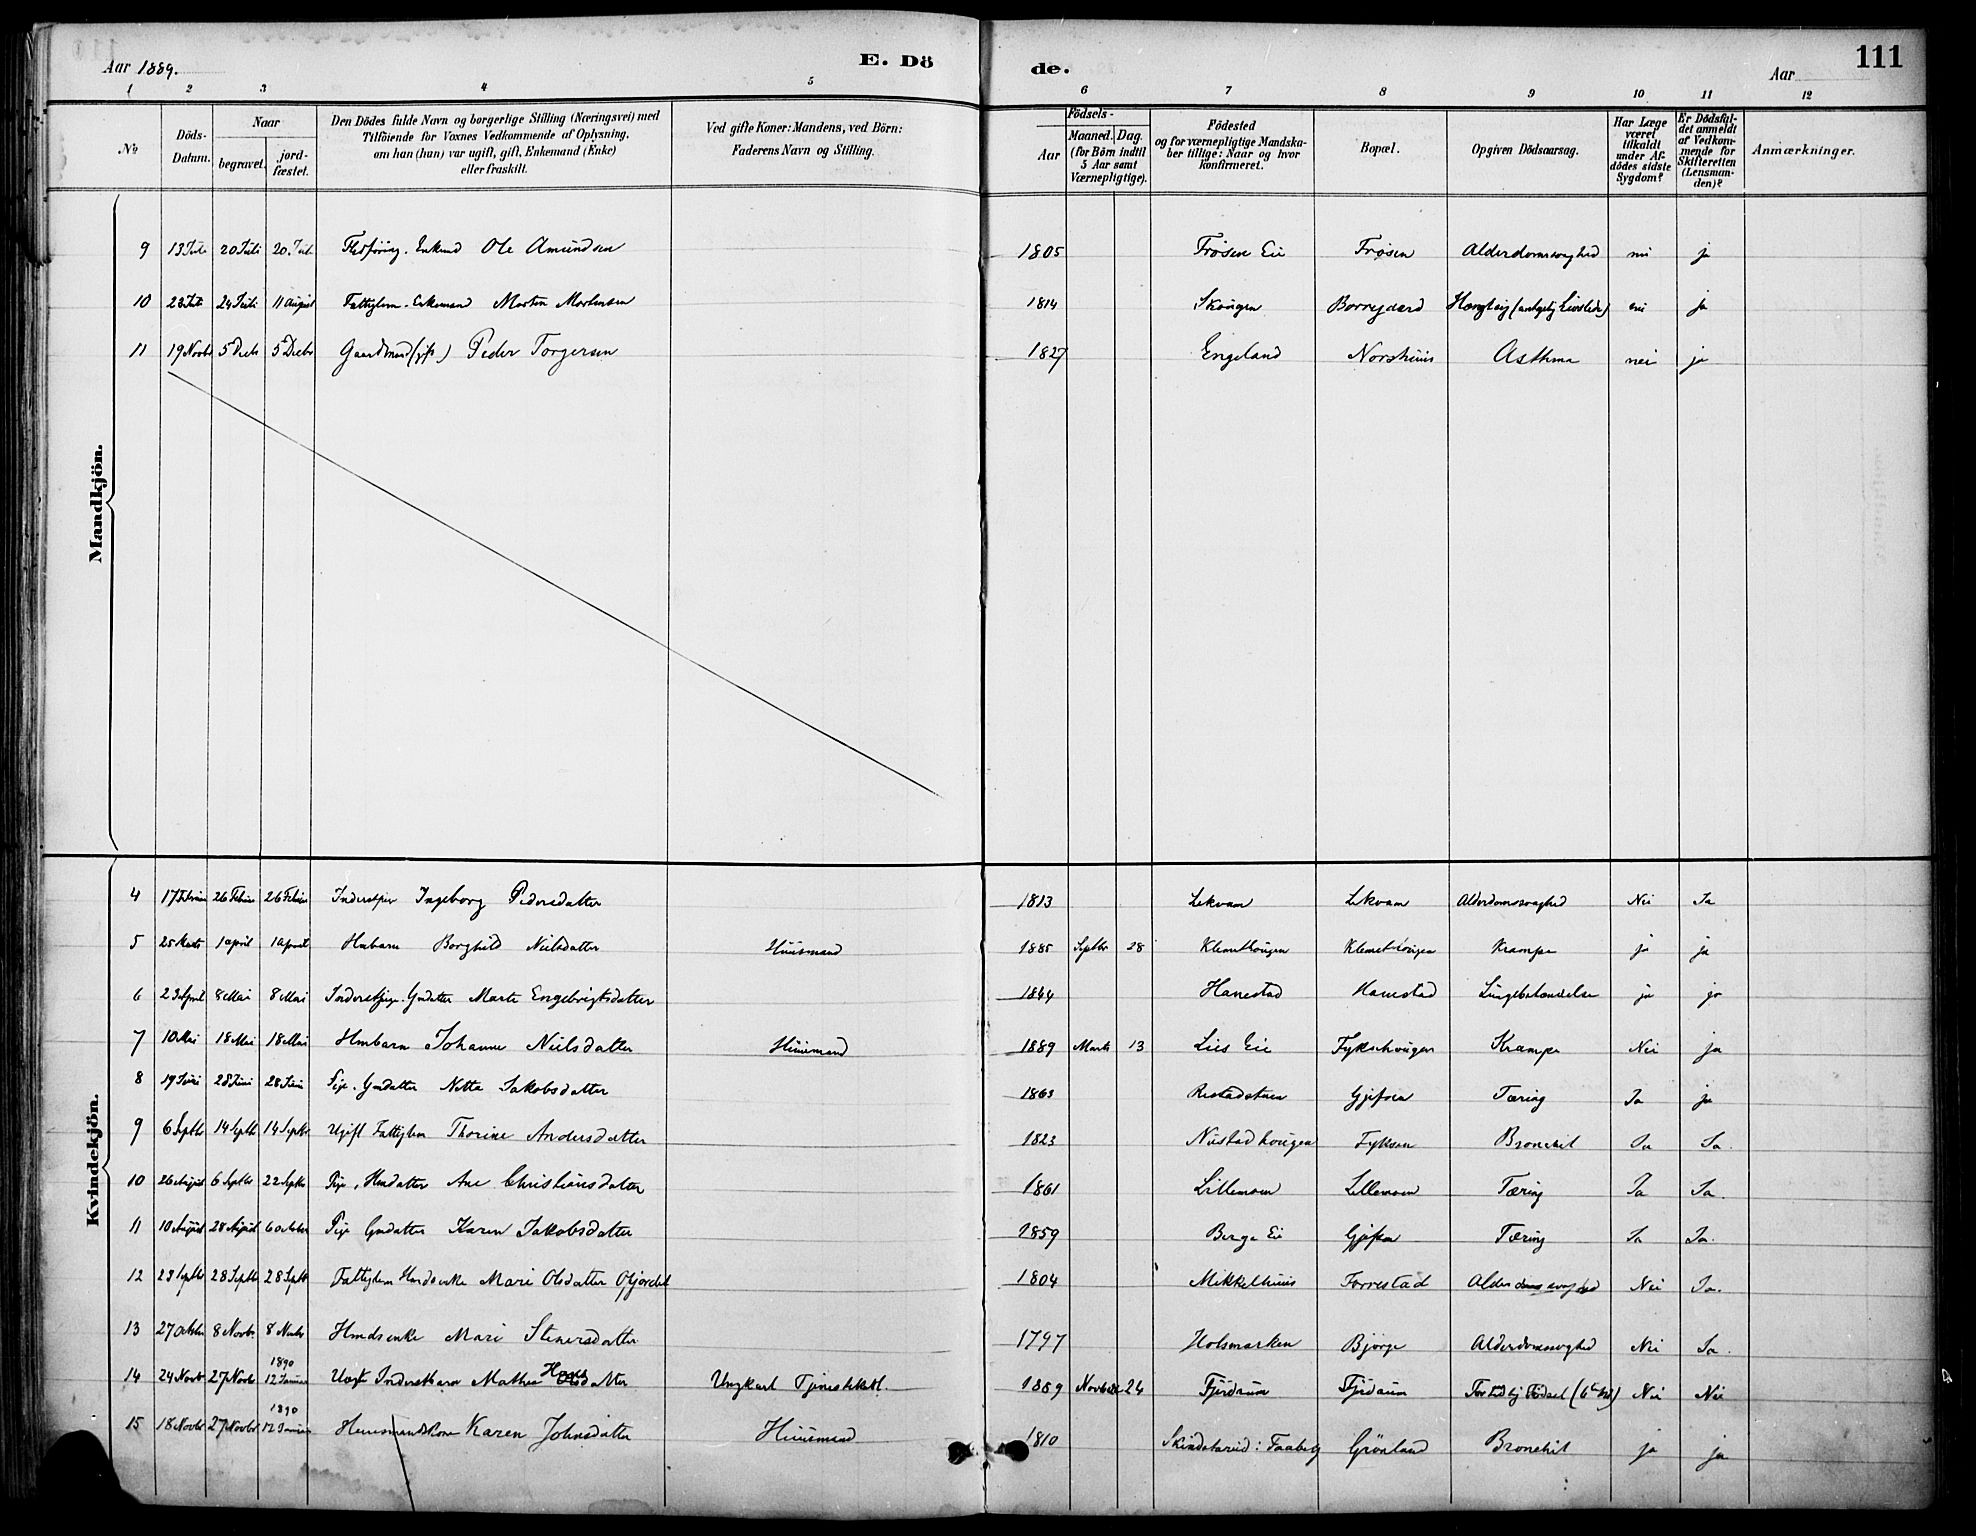 Aar 1889. E. Dö de. Aar 111
1 2 3 4 5 6 7 8 9 10 11 12
No Döds-Datum. Naar begravet. jordfæstet. Den Dödes fulde Navn og borgerlige Stilling (Næringsvei) med Tilföiende for Voxnes Vedkommende af Oplysning, om han (hun) var ugift, gift, Enkemand (Enke) eller fraskilt. Ved gifte Koner: Mandens, ved Börn: Faderens Navn og Stilling. Födsels- Aar Maaned. Dag. (for Börn indtil 5 Aar samt Værnepligtige). Födested og for værnepligtige Mandskaber tillige: Naar og hvor konfirmeret. Bopæl. Opgiven Dödsaarsag. Har Læge været tilkaldt under Afdödes sidste Sygdom? Er Dödsfaldet anmeldt af Vedkommende for Skifteretten (Lensmanden)? Anmærkninger.
Mandkjön.
9 13 Juli 20 Juli 20. Juli Ole Amundsen 1805 Frøsen Eie Frøsen Alderdomssvaghed nei ja
10 23 Juli 24 Juli 11 August Fattiglem. Enkemand Morten Mortensen 1814 Skougen Borregaard nei ja
11 19 Novbr 5 Decbr 5 Decbr Gaardmand (gift) Peder Torgersen 1827 Engeland Norshuus Asthma nei ja
Kvindekjön.
4 17 Februar 26 Februar 26 Februar Inderstpige Ingeborg Pedersdatter 1813 Lekvam Lekvam Alderdomssvaghed Nei Ja
5 25 Marts 1 april 1 april Hmbarn Borghild Nielsdatter Huusmand 1885 Septbr 28 Klemethougen Klemethougen Krampe ja ja
6 23 April 8 Mai 8 Mai Marte Engebrigtsdatter 1844 Hanestad Hanestad Lungebetændelse ja ja
7 10 Mai 18 Mai 18 Mai Hmbarn Johanne Nielsdatter Huusmand 1889 Marts 13 Lies Eie Fykschougen Krampe Nei ja
8 19 Juni 28 Juni 28 Juni Pige. Gmdatter Netta Jakobsdatter 1863 Gjefsen Tæring Ja ja
9 6 Septbr 14 Septbr 14 Septbr Ugift Fattiglem Thorine Andersdatter 1823 Nustadhougen Fyksen Bronchit Ja Ja.
10 26 August 6 Septbr 22 Septbr Pige, Hmdatter Ane Christiansdatter 1861 Lillemoen Lillemoen Tæring Ja Ja.
11 10 August 28 August 6 October Pige Gmdatter Karen Jakobsdatter 1859 Berge Eie Gjefsen Tæring Ja Ja.
12 23 Septbr 28 Septbr 28 Septbr Fattiglem Mari Olsdatter 1804 Mikkelhuus Forrestad Alderdomssvaghed Nei Ja.
13 27 October 8 Novbr. 8 Novbr Hmdsenke Mari Stenersdatter 1797 Holsmarken Bjørge Alderdomssvaghed Nei Ja.
14 24 Novbr 27 Novbr 1890 12 Januar Uægt Inderstbarn Mathea Hansdatter Ungkarl 1889 Novber 24 Fjerdrum Fjerdrum For tidlig Födsel Nei Nei
15 18 Novbr 27 Novbr 1890 12 Januar Huusmandskone Karen Johnsdatter Huusmand 1810 Faaberg Grönland Bronchit ja ja